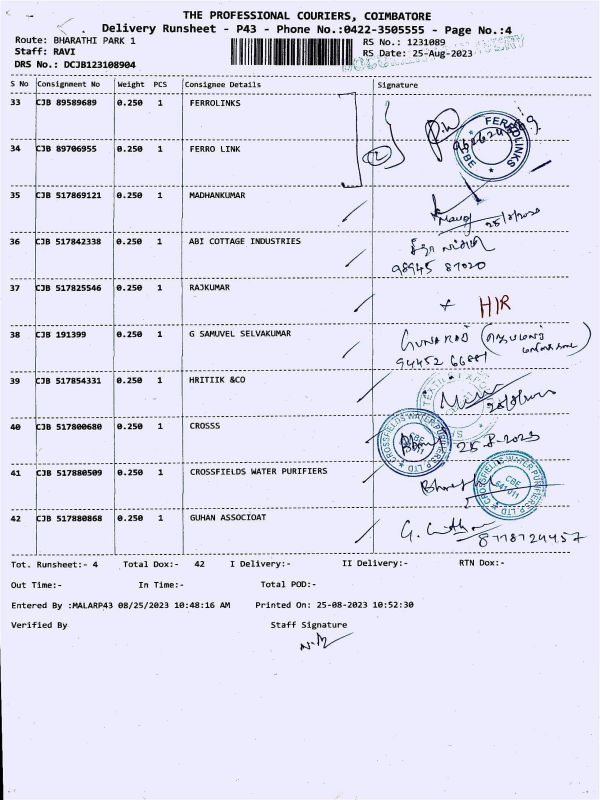 THE PROFESSIONAL COURIERS, COIMBATORE
Delivery Runsheet - P43 - Phone No.:0422-3505555 - Page No.:4
Route: BHARATHI PARK 1
RS No.: 1231089
Staff: RAVI
RS Date: 25-Aug-2023
DRS No.: DCJB123108904
S No Consignment No Weight PCS Consignee Details Signature
33 CJB 89589689 0.250 1 FERROLINKS
FERROLINKS CBE
34 CJB 89706955 0.250 1 FERRO LINK
2
35 CJB 517869121 0.250 1 MADHANKUMAR
36 CJB 517842338 0.250 1 ABI COTTAGE INDUSTRIES
98945 87020
37 CJB 517825546 0.250 1 RAJKUMAR
38 CJB 191399 0.250 1 G SAMUVEL SELVAKUMAR
GUNARAJ
94452 66881
39 CJB 517854331 0.250 1 HRITIIK &CO
40 CJB 517800680 0.250 1 CROSSS
CROSSFIELDS WATER PURIFIERS P. LTD
25-8-2023
41 CJB 517880509 0.250 1 CROSSFIELDS WATER PURIFIERS
CROSSFIELDS WATER PURIFIERS P. LTD CBE 641 011
42 CJB 517880868 0.250 1 GUHAN ASSOCIOAT
8778724457
Tot. Runsheet:- 4 Total Dox:- 42 I Delivery:- II Delivery:- RTN Dox:-
Out Time:- In Time:- Total POD:-
Entered By :MALARP43 08/25/2023 10:48:16 AM Printed On: 25-08-2023 10:52:30
Verified By Staff Signature